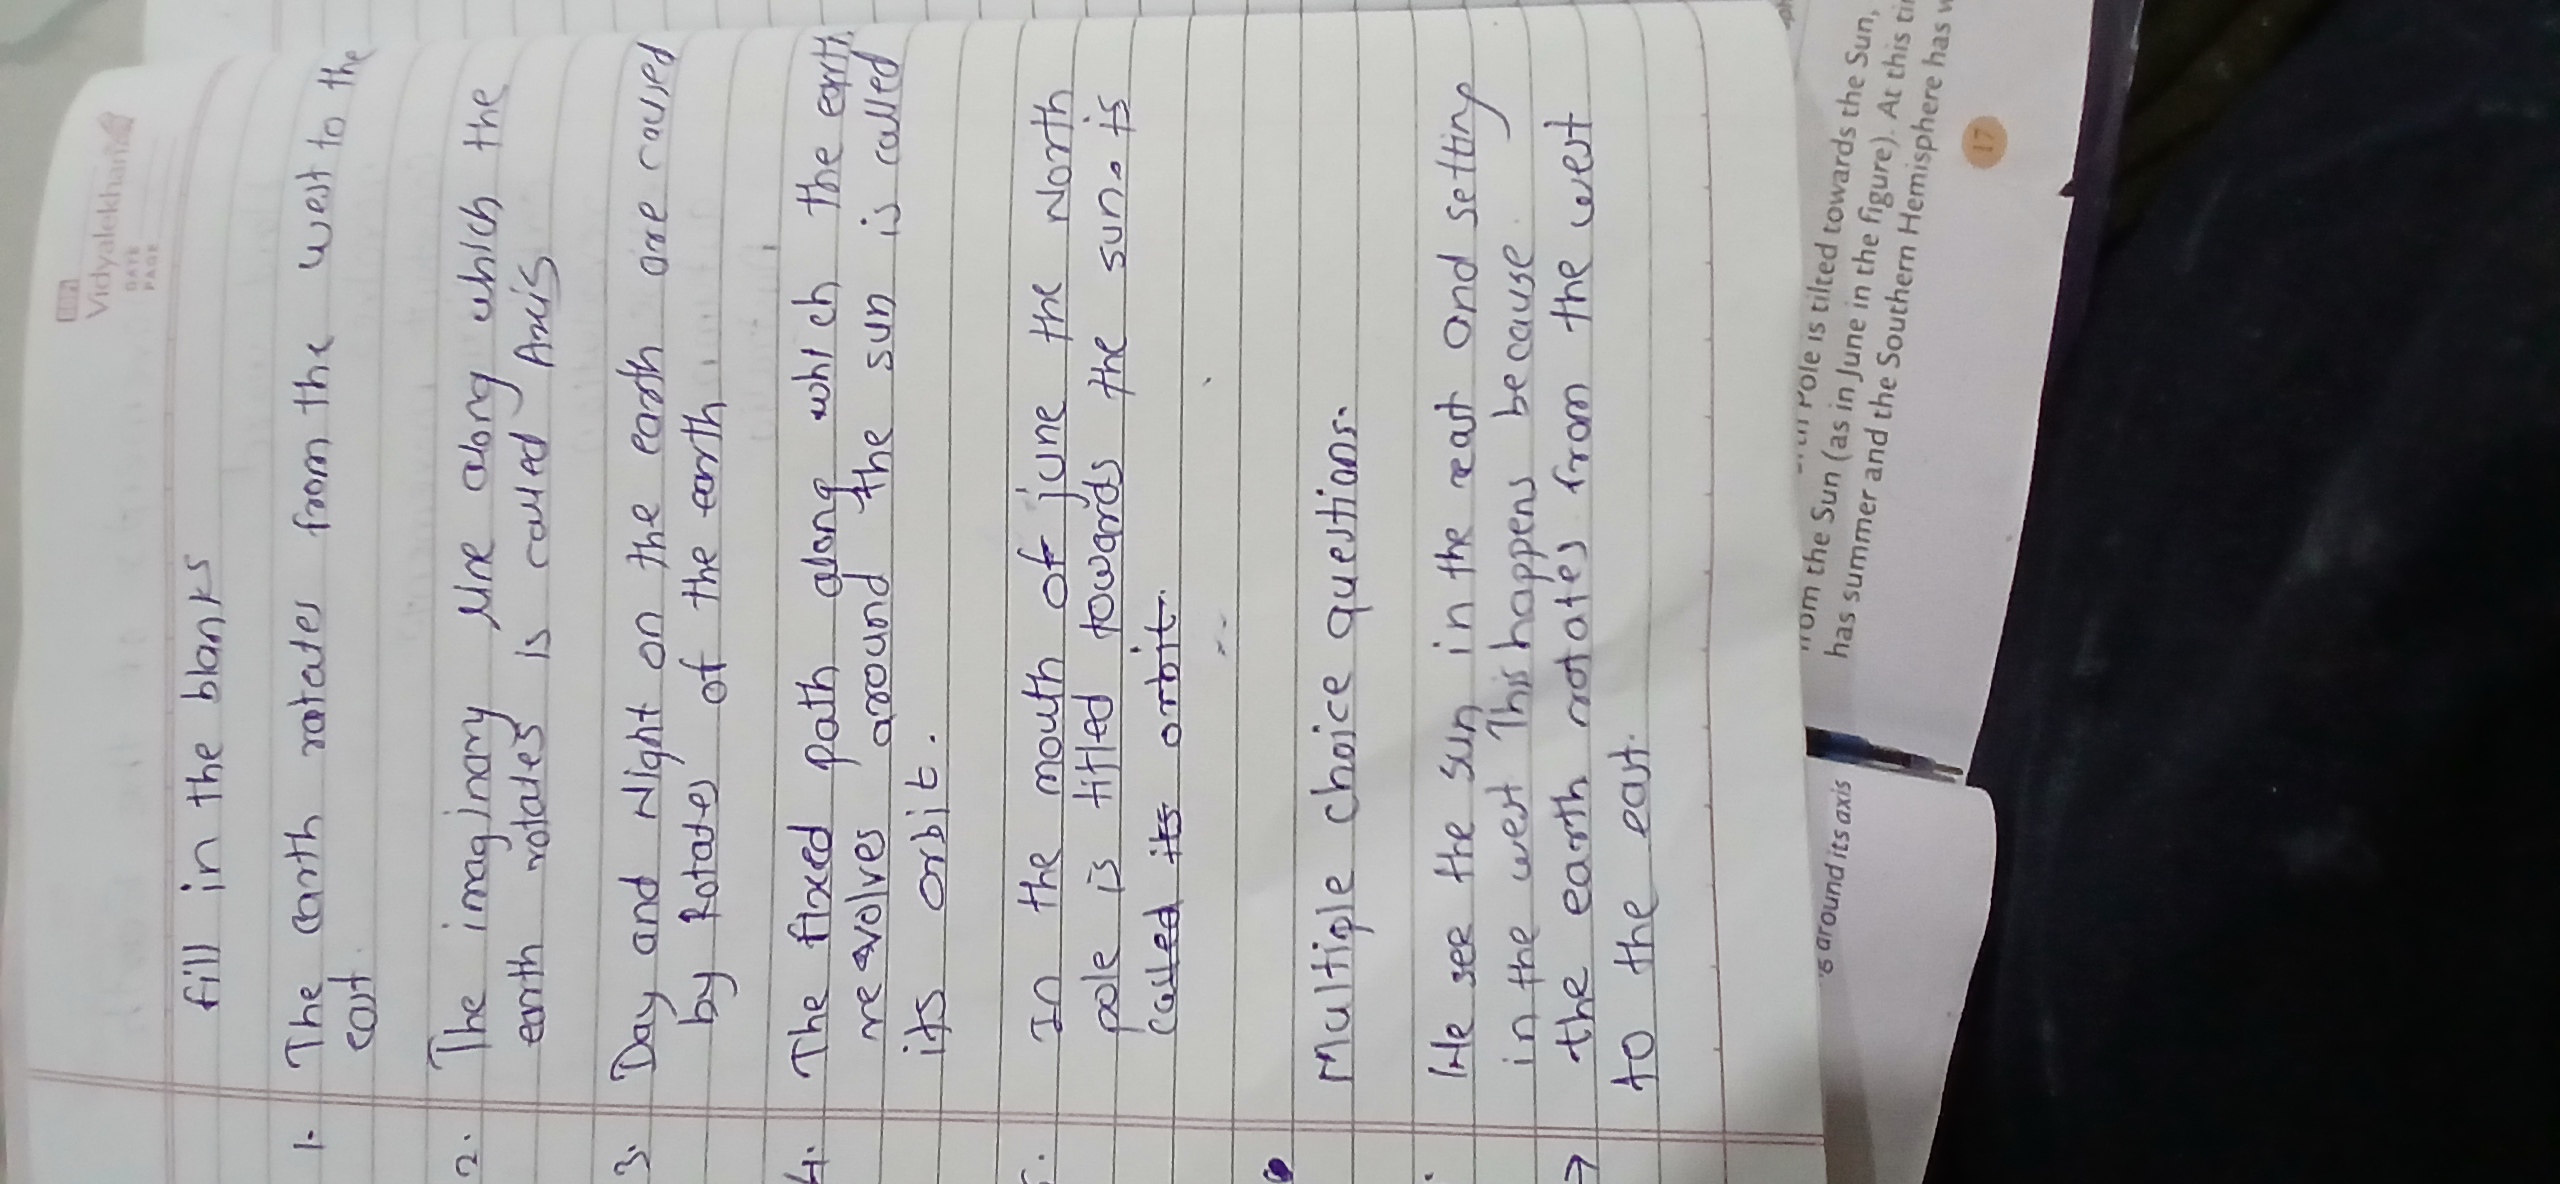 Vidyalekhan
DATE
PAGE
fill in the blanks
1. The earth rotates from the west to the
east.
2. The imaginary line along which the
earth rotates is called Axis
3. Day and Night on the earth are caused
by Rotates of the earth
4. The fixed path along which the earth
revolves around the sun is called
its orbit.
5. In the mouth of june the North
pole is titled towards the sun. is
called its orbit.
Multiple choice questions.
We see the sun in the east and setting
in the west This happens because
→ the earth rotates from the west
to the east.
Pole is tilted towards the Sun,
from the Sun (as in June in the figure). At this
has summer and the Southern Hemisphere has
17
around its axis